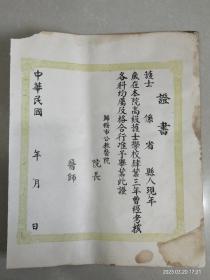 證書
護士 係 省 縣人現年
歲在本院高級護士學校肄業三年曾經考核
各科均屬及格合行准予畢業此證
歸綏市公教醫院
院長
醫師
中華民國 年 月 日
2023.03.20 17:21